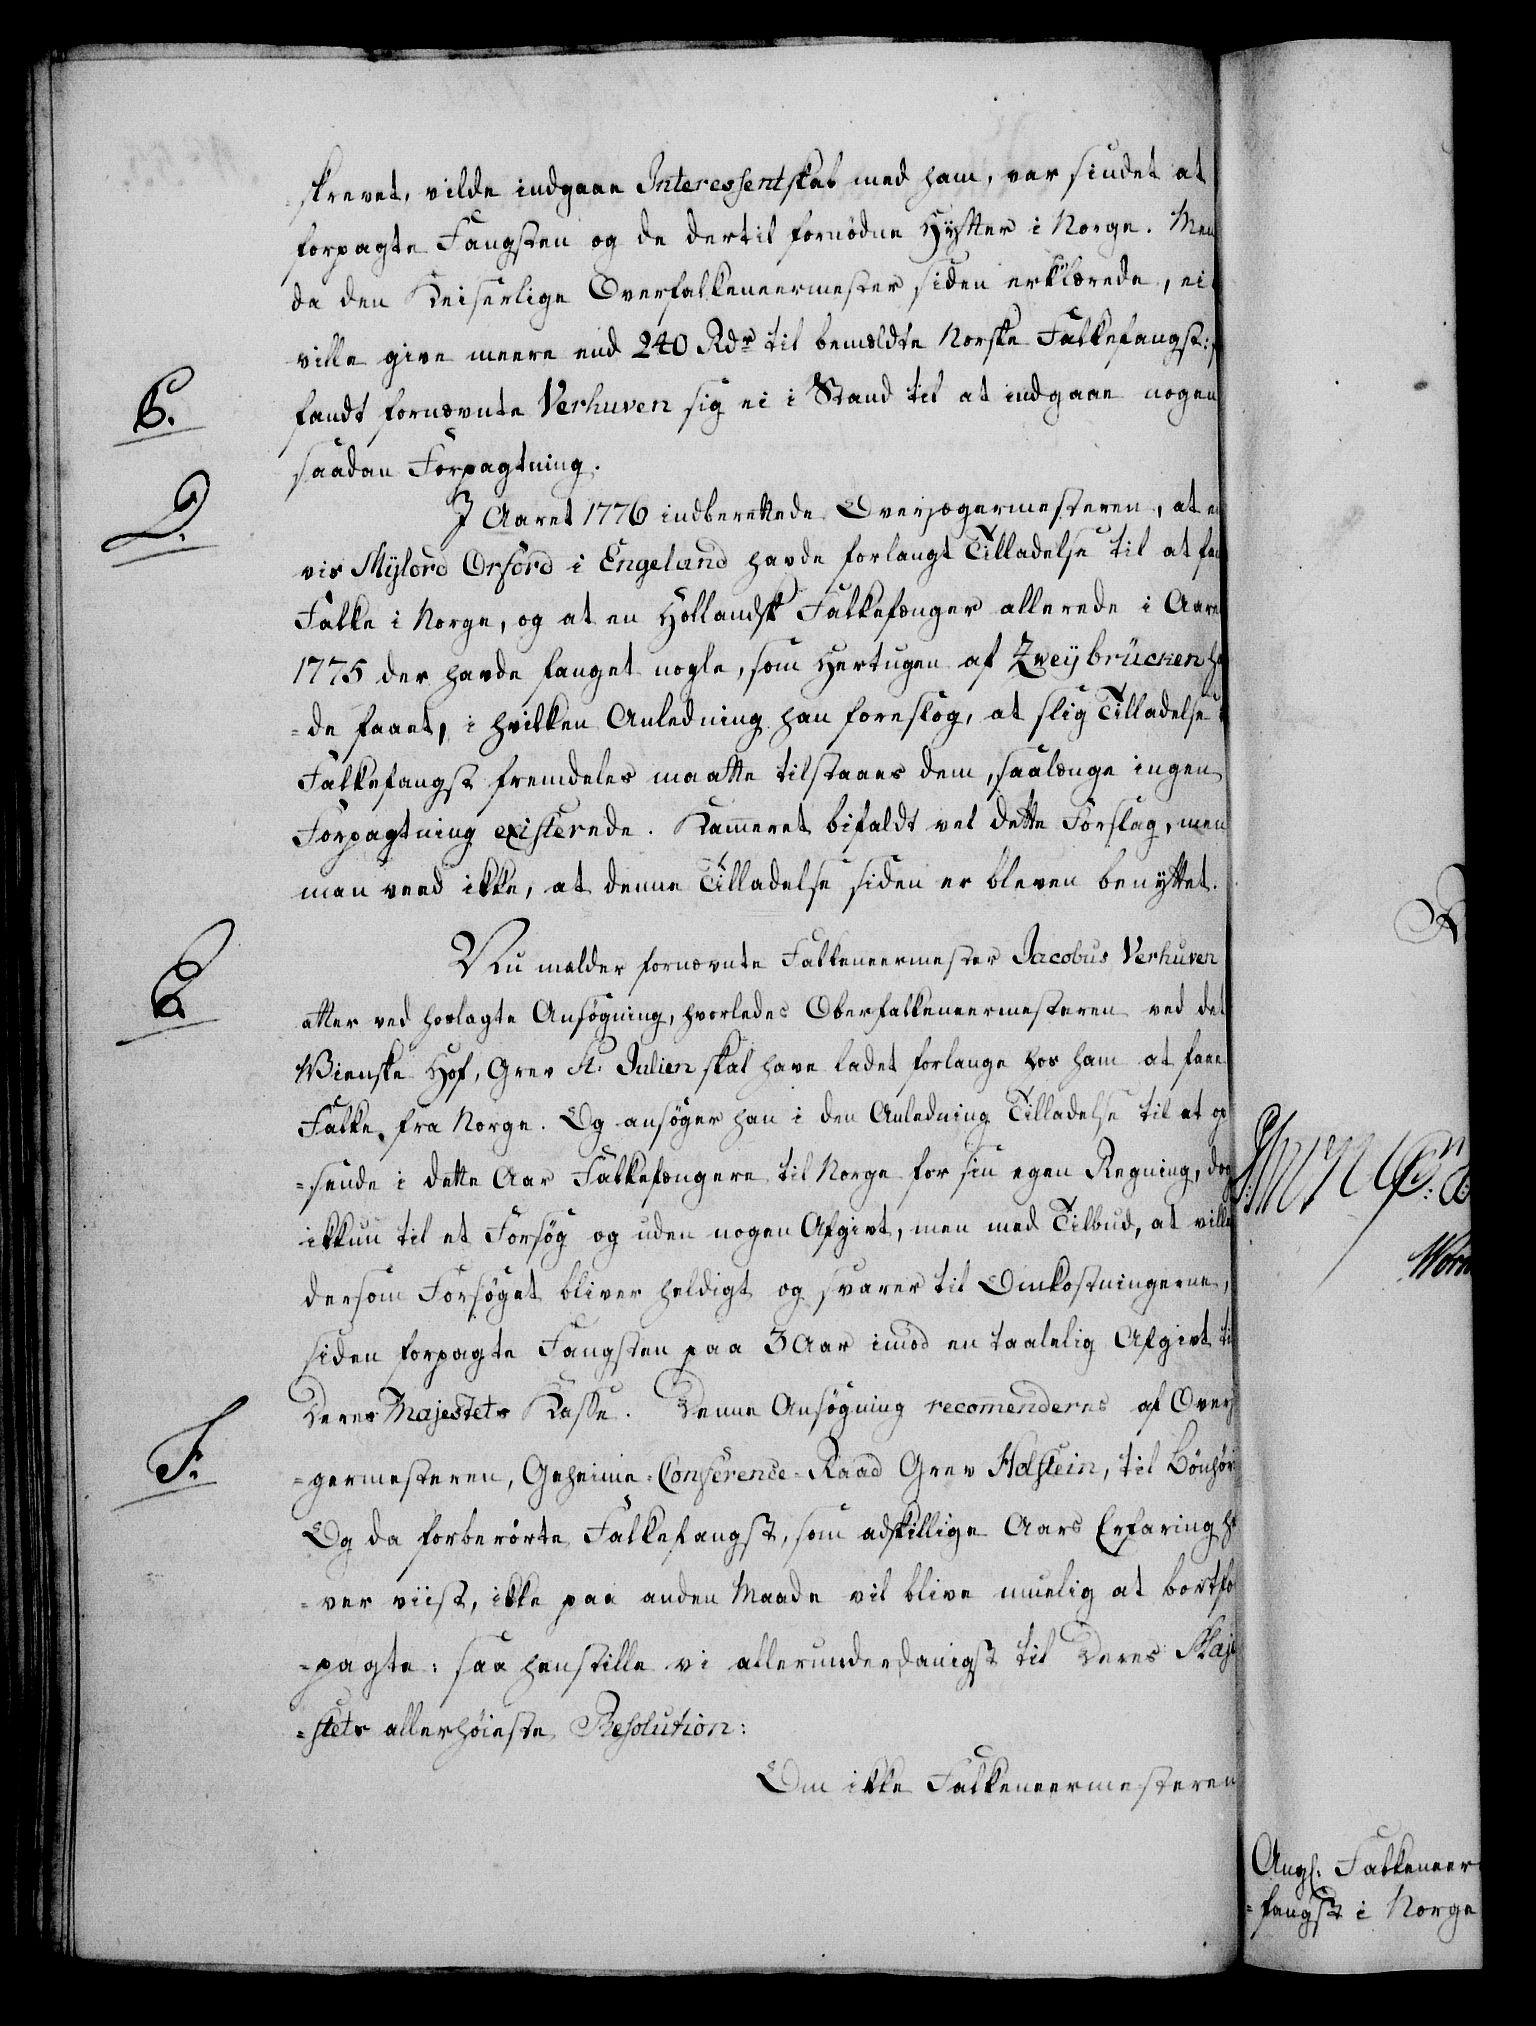 skrevet, vilde indgaae Interessentskab med ham, var sindet at
forpagte Fangsten og de dertil fornödne Hytter i Norge. Men
da den Keiserlige Overfalkeneermester siden erklærede, ei
ville give meere end 240 Rdr til bemeldte Norske Falkefangst:
C.
fandt fornævnte Verhuven sig ei i Stand til at indgaae nogen
saadan Forpagtning.
D.
I Aaret 1776 indberettede Overjægermesteren, at en
vis Mylord Orford i Engeland havde forlangt Tilladelse til at
Falke i Norge, og at en Hollandsk Falkefænger allerede i Aaret
1775 der havde fanget nogle, som Hertugen af Zweybrücken
=de faaet, i hvilken Anledning han foreslog, at slig Tilladelse
Falkefangst fremdeles maatte tilstaaes dem, saalænge ingen
Forpagtning existerede. Kammeret bifaldt vel dette Forslag, men
man veed ikke, at denne Tilladelse siden er bleven benyttet.
Nu melder fornævnte Falkeneermester Jacobus Verhuven
E.
atter ved hoslagte Ansögning, hvorledes Oberfalkeneermesteren ved det
Wienske Hof, Grev St. Julien skal have ladet forlange hos ham at faae
Falke fra Norge. Og ansöger han i den Anledning Tilladelse til at op
=sende i dette Aar Falkefængere til Norge for sin egen Regning, dog
ikkun til et Forsög og uden nogen Afgivt, men med Tilbud, at ville
dersom Forsöget bliver heldigt og svarer til Omkostningerne,
siden forpagte Fangsten paa 3 Aar imod en taalelig Afgivt til
Deres Majestets Kasse. Denne Ansögning recommenderes af Overj
F.
=germesteren, Geheime-Conference-Raad Grev Holstein, til Bönhör
Og da forberörte Falkefangst, som adskillige Aars Erfaring ha
=ver viist, ikke paa anden Maade vil blive muelig at bortfor
=pagte: saa henstille vi allerunderdanigst til Deres Maje
=stets allerhöieste Resolution:
Om ikke Falkeneermesteren
Ang: Falkeneer
=fangst i Norge